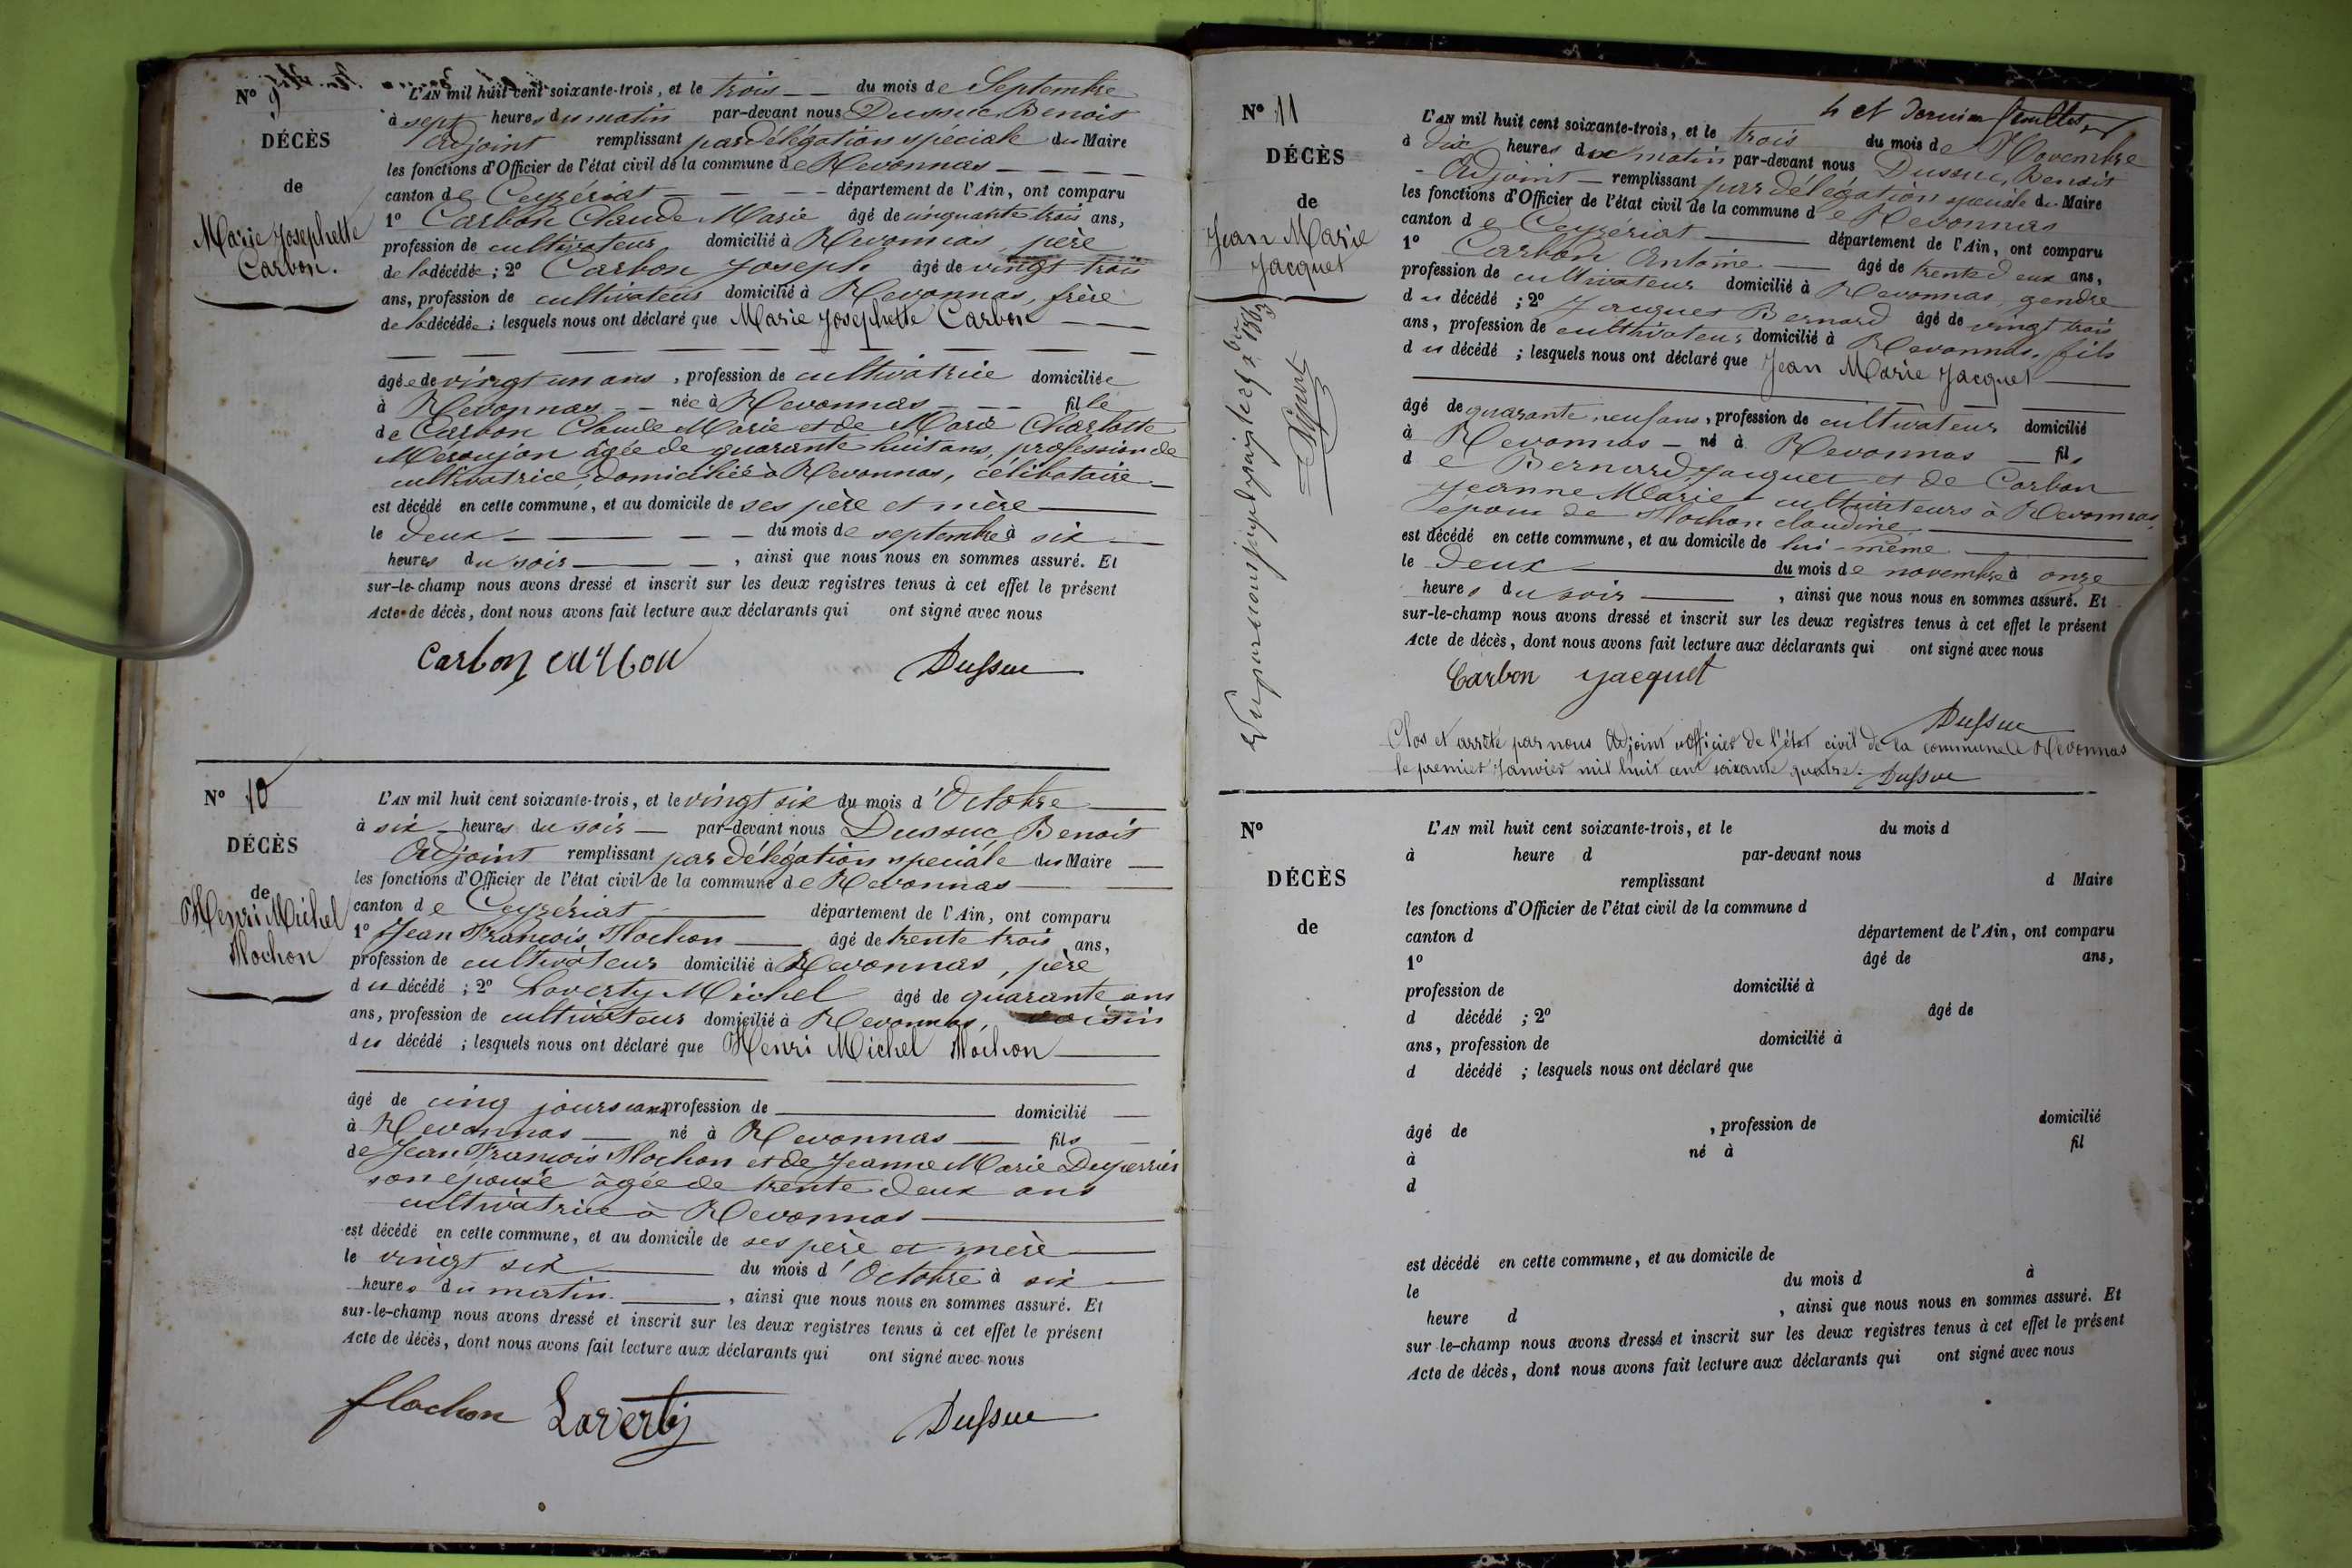 N° 9
DÉCÈS
de
Marie Josephette
Carbon.
L'AN mil huit cent soixante-trois, et le trois du mois de Septembre
à sept heures du matin par-devant nous Dussuc, Benoit
Adjoint remplissant par délégation spéciale du Maire
les fonctions d'Officier de l'état civil de la commune de Revonnas
canton de Ceyzériat département de l'Ain, ont comparu
1° Carbon Claude Marie âgé de cinquante trois ans,
profession de cultivateur domicilié à Revonnas père
de la décédée ; 2° Carbon Joseph âgé de vingt trois
ans, profession de cultivateur domicilié à Revonnas, frère
de la décédée ; lesquels nous ont déclaré que Marie Josephette Carbon
âgée de vingt un ans, profession de cultivatrice domiciliée
à Revonnas née à Revonnas fille
de Carbon Claude Marie et de Marie Charlotte
âgée de quarante huit ans, profession de
cultivatrice, domiciliée à Revonnas, célibataire
est décédé en cette commune, et au domicile de ses père et mère
le deux du mois de septembre à six
heures du soir, ainsi que nous nous en sommes assuré. Et
sur-le-champ nous avons dressé et inscrit sur les deux registres tenus à cet effet le présent
Acte de décès, dont nous avons fait lecture aux déclarants qui ont signé avec nous
Carbon carbon Dussuc
N° 10
DÉCÈS
de
Henri Michel
Flochon
L'AN mil huit cent soixante-trois, et le vingt six du mois d'Octobre
à six heures du soir par-devant nous Dussuc, Benoit
Adjoint remplissant par délégation spéciale du Maire
les fonctions d'Officier de l'état civil de la commune de Revonnas
canton de Ceyzériat département de l'Ain, ont comparu
1° Jean François Flochon âgé de trente trois ans,
profession de cultivateur domicilié à Revonnas, père
du décédé ; 2° Laverty Michel âgé de quarante ans
ans, profession de cultivateur domicilié à Revonnas, voisin
du décédé ; lesquels nous ont déclaré que Henri Michel Flochon
âgé de cinq jours profession de domicilié
à Revonnas né à Revonnas fils
de Jean François Flochon et de Jeanne Marie Duperrier
son épouse âgée de trente deux ans
cultivatrice à Revonnas
est décédé en cette commune, et au domicile de ses père et mère
le vingt six du mois d'Octobre à six
heures du matin, ainsi que nous nous en sommes assuré. Et
sur-le-champ nous avons dressé et inscrit sur les deux registres tenus à cet effet le présent
Acte de décès, dont nous avons fait lecture aux déclarants qui ont signé avec nous
flochon Laverty Dussuc
4 et dernier feuillet
N° 11
DÉCÈS
de
Jean Marie
Jacquet
Vu par nous
L'AN mil huit cent soixante-trois, et le trois du mois de Novembre
à dix heures du matin par-devant nous Dussuc, Benoit
Adjoint remplissant par délégation spéciale du Maire
les fonctions d'Officier de l'état civil de la commune de Revonnas
canton de Ceyzériat département de l'Ain, ont comparu
1° Carbon Antoine âgé de trente deux ans,
profession de cultivateur domicilié à Revonnas, gendre
du décédé ; 2° Jacquet Bernard âgé de vingt trois
ans, profession de cultivateur domicilié à Revonnas, fils
du décédé ; lesquels nous ont déclaré que Jean Marie Jacquet
âgé de quarante neuf ans, profession de cultivateur domicilié
à Revonnas né à Revonnas fils
de Bernard Jacquet et de Carbon
Jeanne Marie cultivateurs à Revonnas,
époux de Flochon claudine
est décédé en cette commune, et au domicile de lui-même
le deux du mois de novembre à onze
heures du soir, ainsi que nous nous en sommes assuré. Et
sur-le-champ nous avons dressé et inscrit sur les deux registres tenus à cet effet le présent
Acte de décès, dont nous avons fait lecture aux déclarants qui ont signé avec nous
Carbon Jacquet
Dussuc
Clos et arrêté par nous Adjoint officier de l'état civil de la commune de Revonnas
le premier Janvier mil huit cent soixante quatre. Dussuc
N°
DÉCÈS
de
L'AN mil huit cent soixante-trois, et le du mois d
à heure d par-devant nous
remplissant d Maire
les fonctions d'Officier de l'état civil de la commune d
canton d département de l'Ain, ont comparu
1° âgé de ans,
profession de domicilié à
d décédé ; 2° âgé de
ans, profession de domicilié à
d décédé ; lesquels nous ont déclaré que
âgé de , profession de domicilié
à né à fil
d
est décédé en cette commune, et au domicile de
le du mois d à
heure d , ainsi que nous nous en sommes assuré. Et
sur le-champ nous avons dressé et inscrit sur les deux registres tenus à cet effet le présent
Acte de décès, dont nous avons fait lecture aux déclarants qui ont signé avec nous